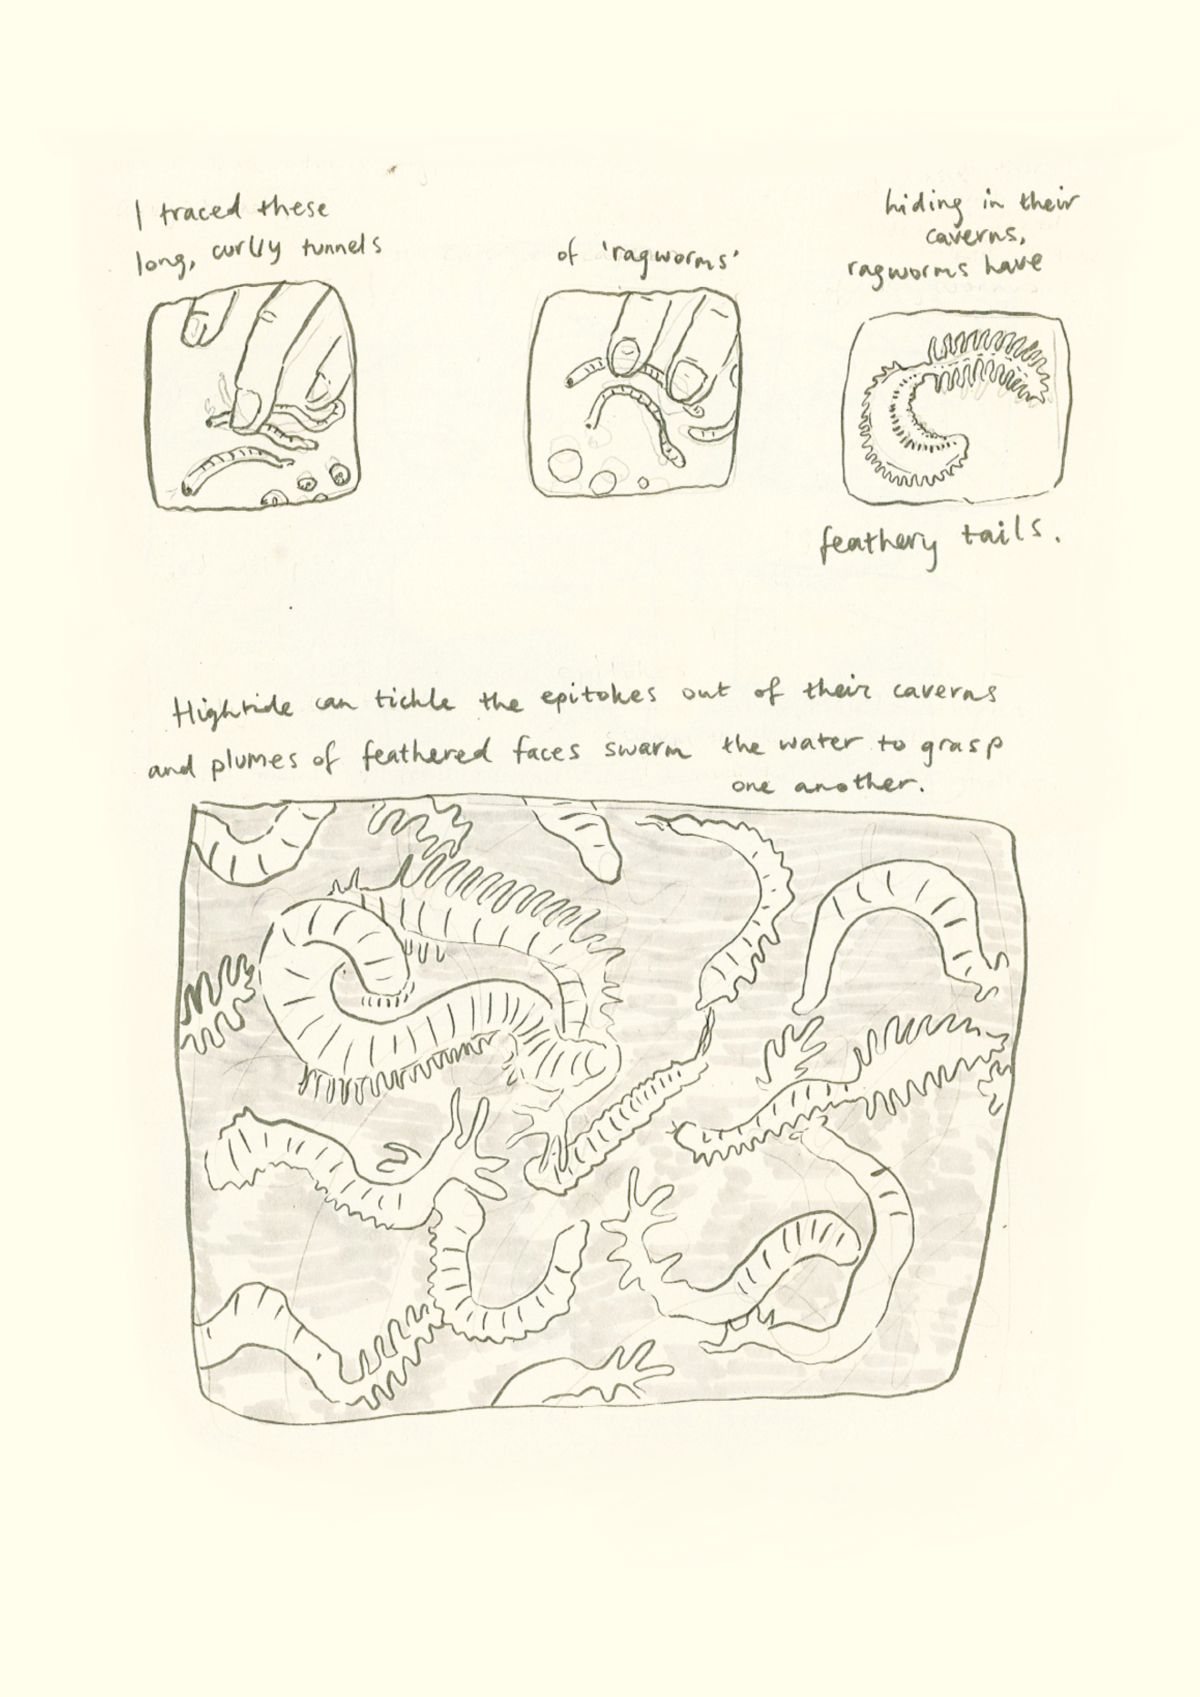 I traced these
long, curlly tunnels
of 'ragworms'
hiding in their
caverns,
ragworms have
feathery tails.
Hightide can tickle the epitokes out of their caverns
and plumes of feathered faces swarm the water to grasp
one another.